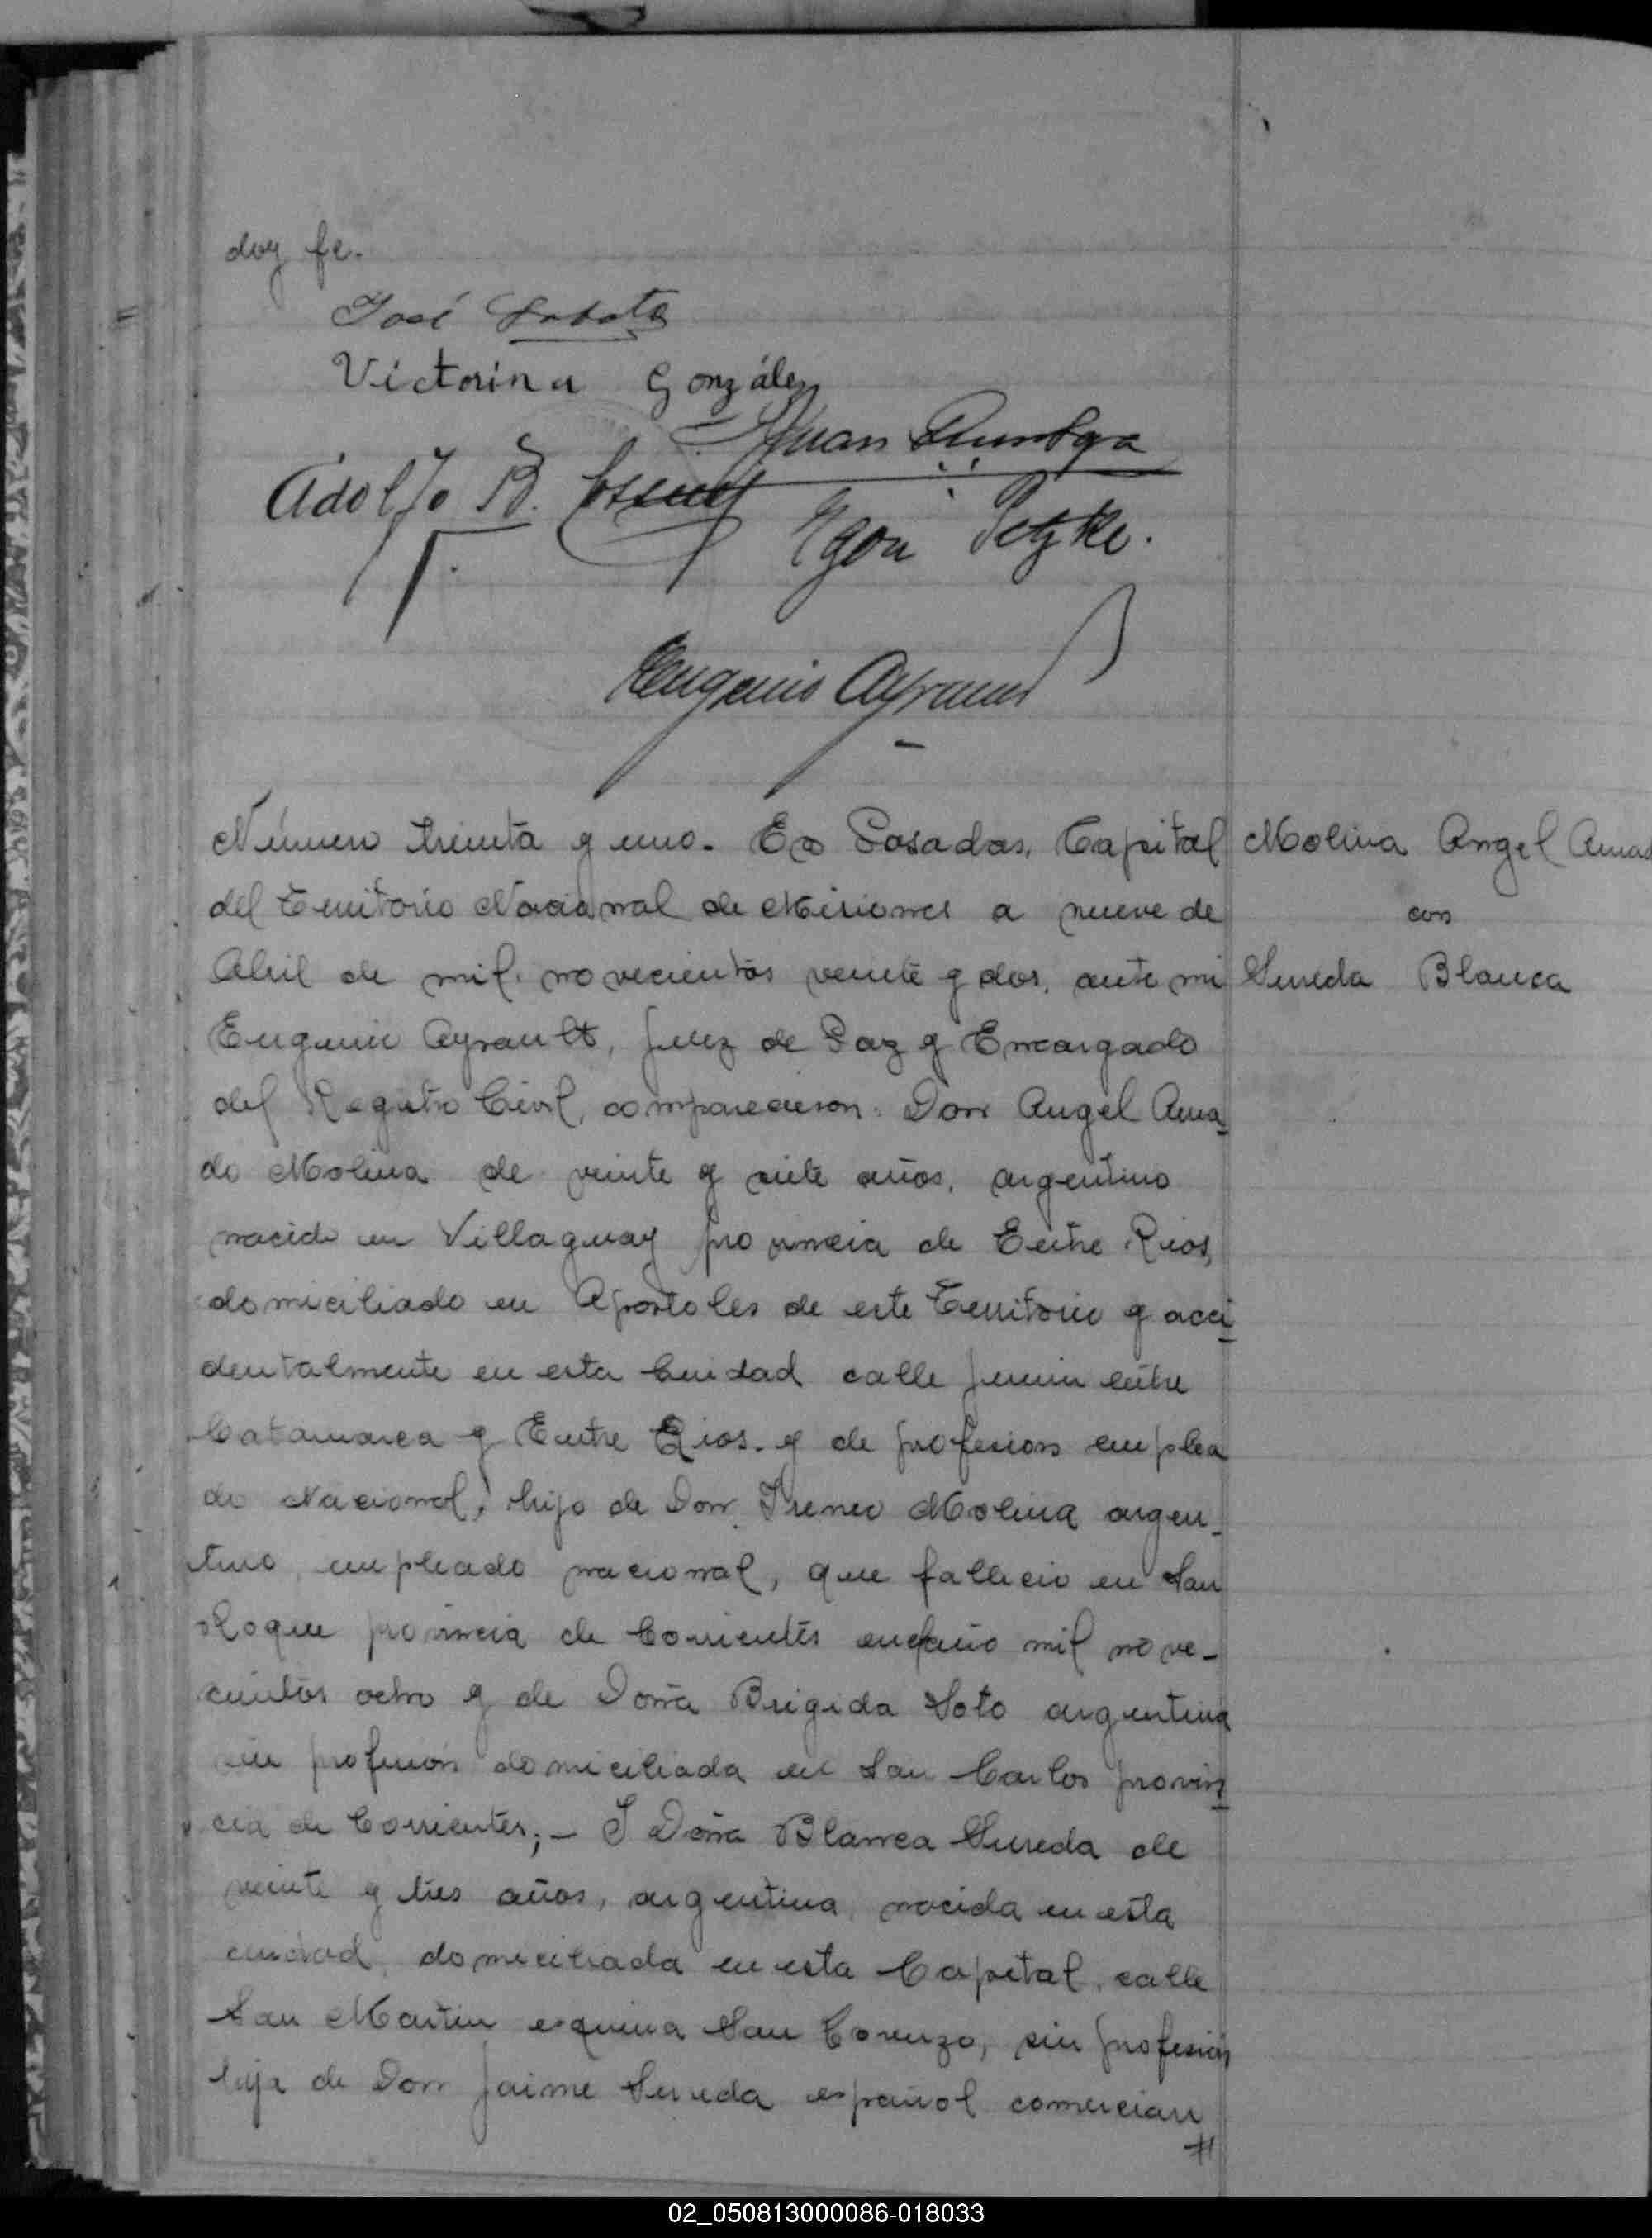 doy fe.
José
Victorina González
Juan
Adolfo B.
Egon Petzke.
Eugenio Ayrault
Número treinta y uno. En Posadas, Capital
Molina Angel Amad
del Territorio Nacional de Misiones a nueve de
con
Abril de mil novecientos veinte y dos, ante mi
Sureda Blanca
Eugenio Ayrault, Juez de Paz y Encargado
del Registro Civil, comparecieron: Don Angel Ama
do Molina de veinte y siete años, argentino
nacido en Villaguay provincia de Entre Rios,
domiciliado en Apostoles de este Territorio y acci
dentalmente en esta Ciudad calle Junin entre
Catamarca y Entre Rios. y de profesion emplea
do Nacional, hijo de Don Ireneo Molina argen-
tino, empleado nacional, que fallecio en San
Roque provincia de Corrientes en el año mil nove-
cientos ocho y de Doña Brigida Soto argentina
sin profesión domiciliada en San Carlos provin
cia de Corrientes;- I Doña Blanca Sureda de
veinte y tres años, argentina, nacida en esta
ciudad, domiciliada en esta Capital, calle
San Martin esquina San Lorenzo, sin profesión
hija de Don Jaime Sureda español comercian
#
02_050813000086-018033